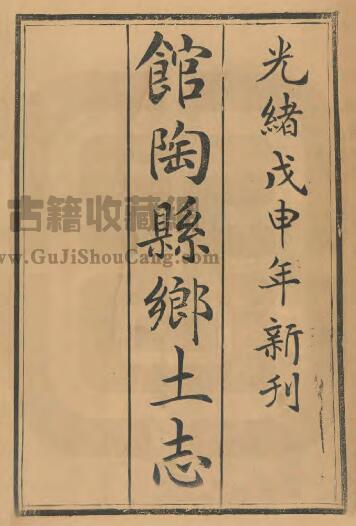 光緒戊申年新刊
館陶縣鄉土志
古籍收藏網
www.GuJiShouCang.com